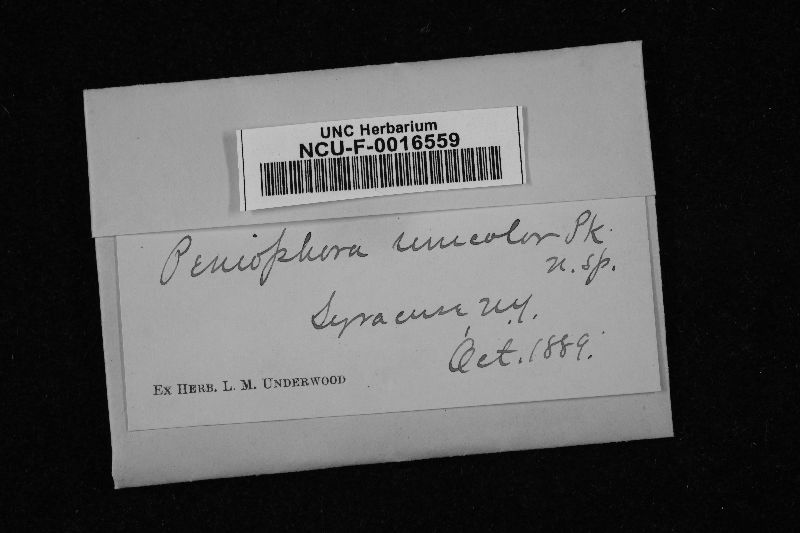 UNC Herbarium
NCU-F-0016559
Peniophora unicolor Pk.
n. sp.
Syracuse N.Y.
Oct. 1889.
Ex Herb. L. M. Underwood